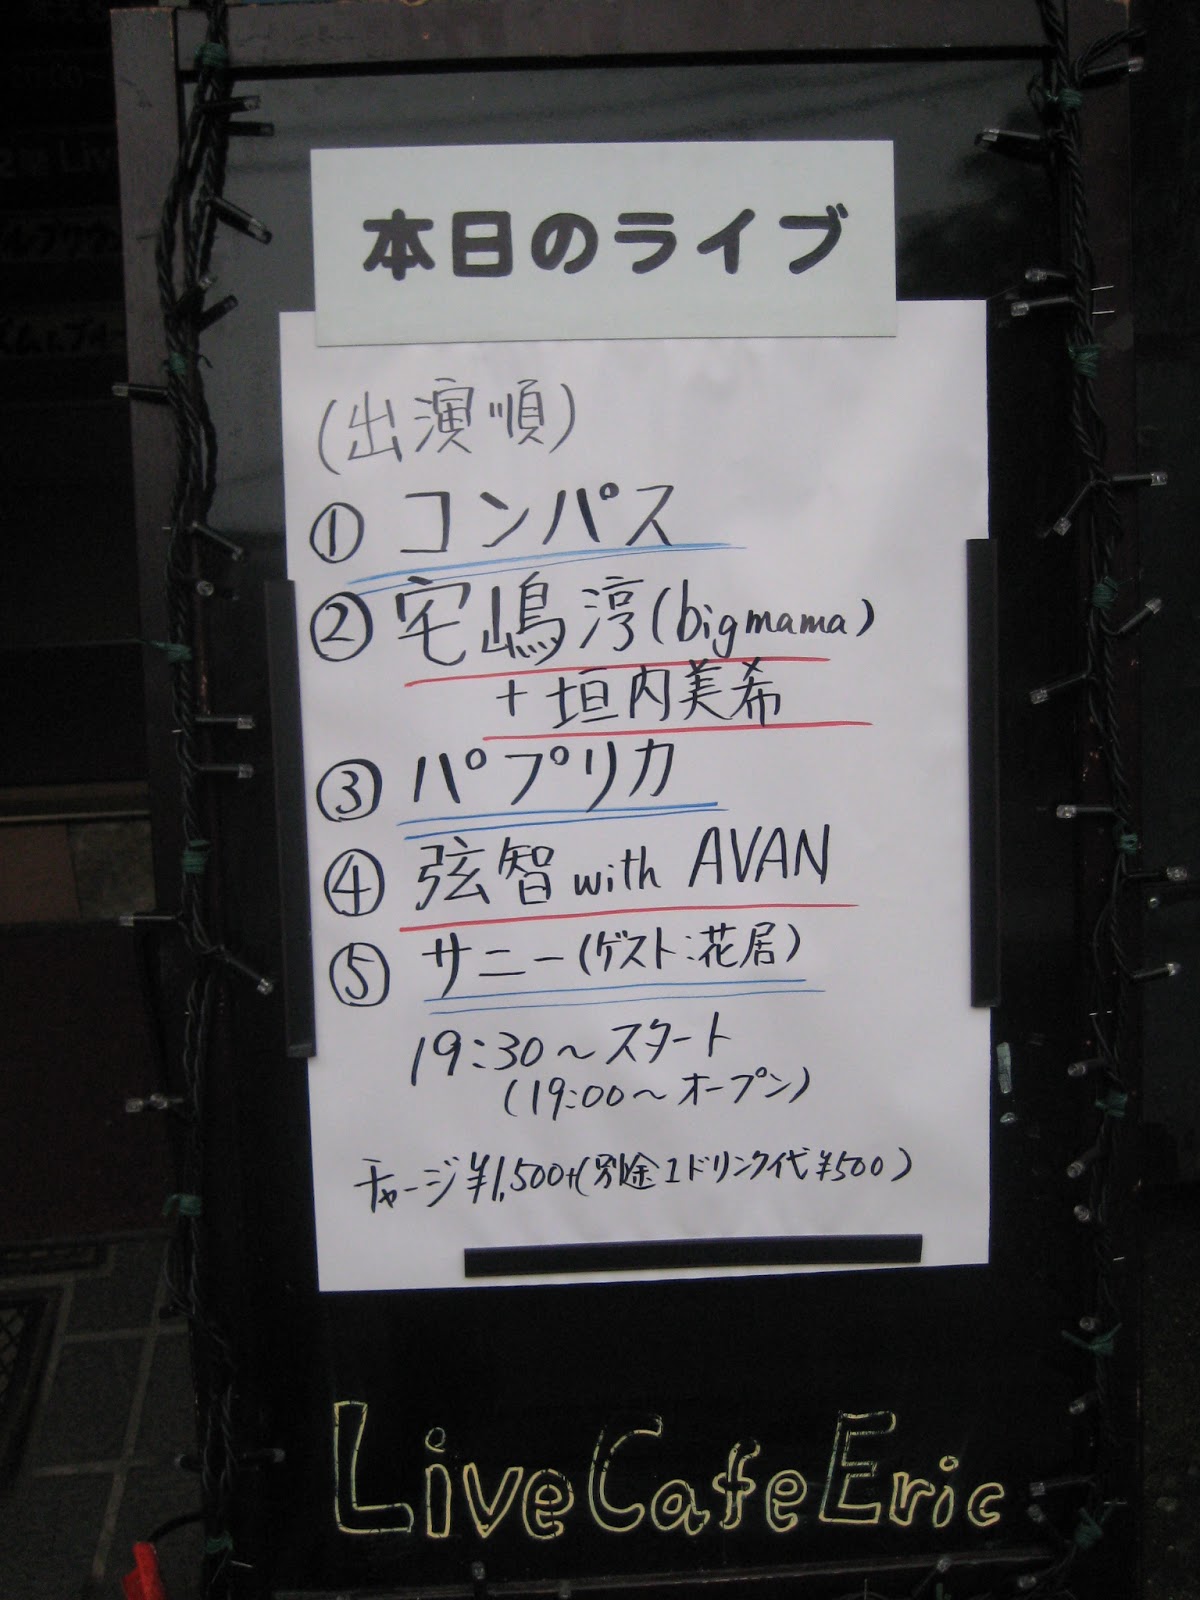 本日のライブ
(出演順)
① コンパス
② 宅嶋淳(bigmama)
+垣内美希
③ パプリカ
④ 弦智 with AVAN
⑤ サニー(ゲスト:花居)
19:30〜スタート
(19:00〜オープン)
チャージ¥1,500+(別途1ドリンク代¥500)
Live Cafe Eric